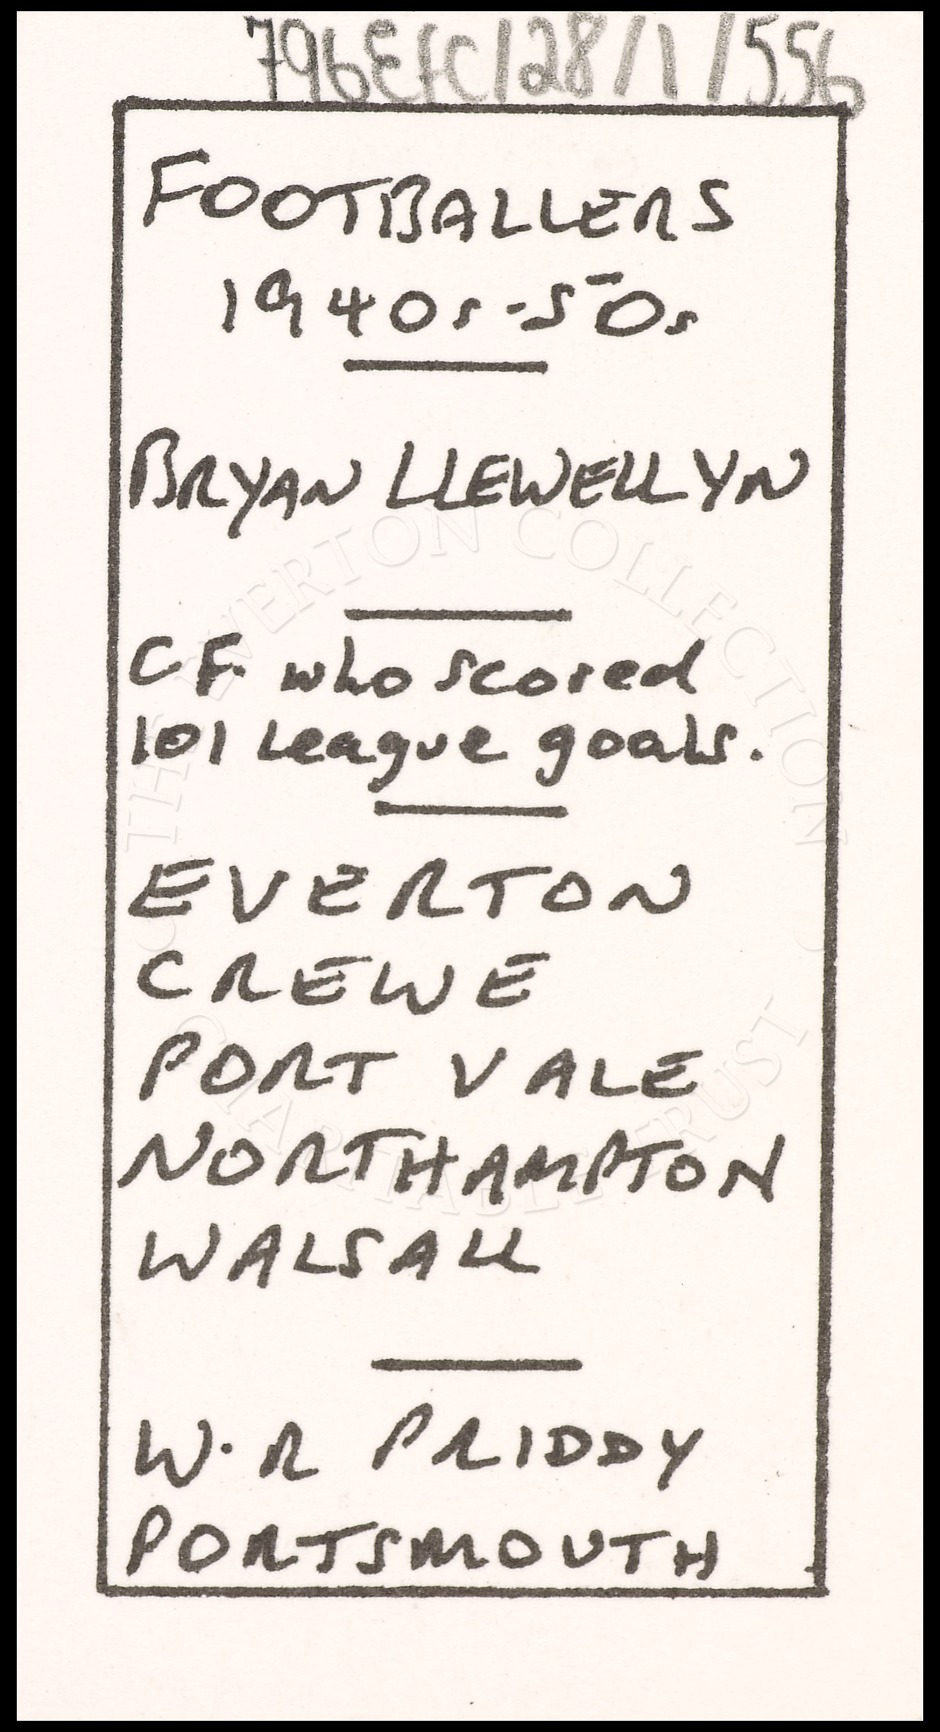 796EFC/28/1/556
FOOTBALLERS
1940s-50s
BRYAN LLEWELLYN
C.F. who scored
101 League goals.
EVERTON
CREWE
PORT VALE
NORTHAMPTON
WALSALL
W.R PRIDDY
PORTSMOUTH
THE EVERTON COLLECTION
CHARITABLE TRUST